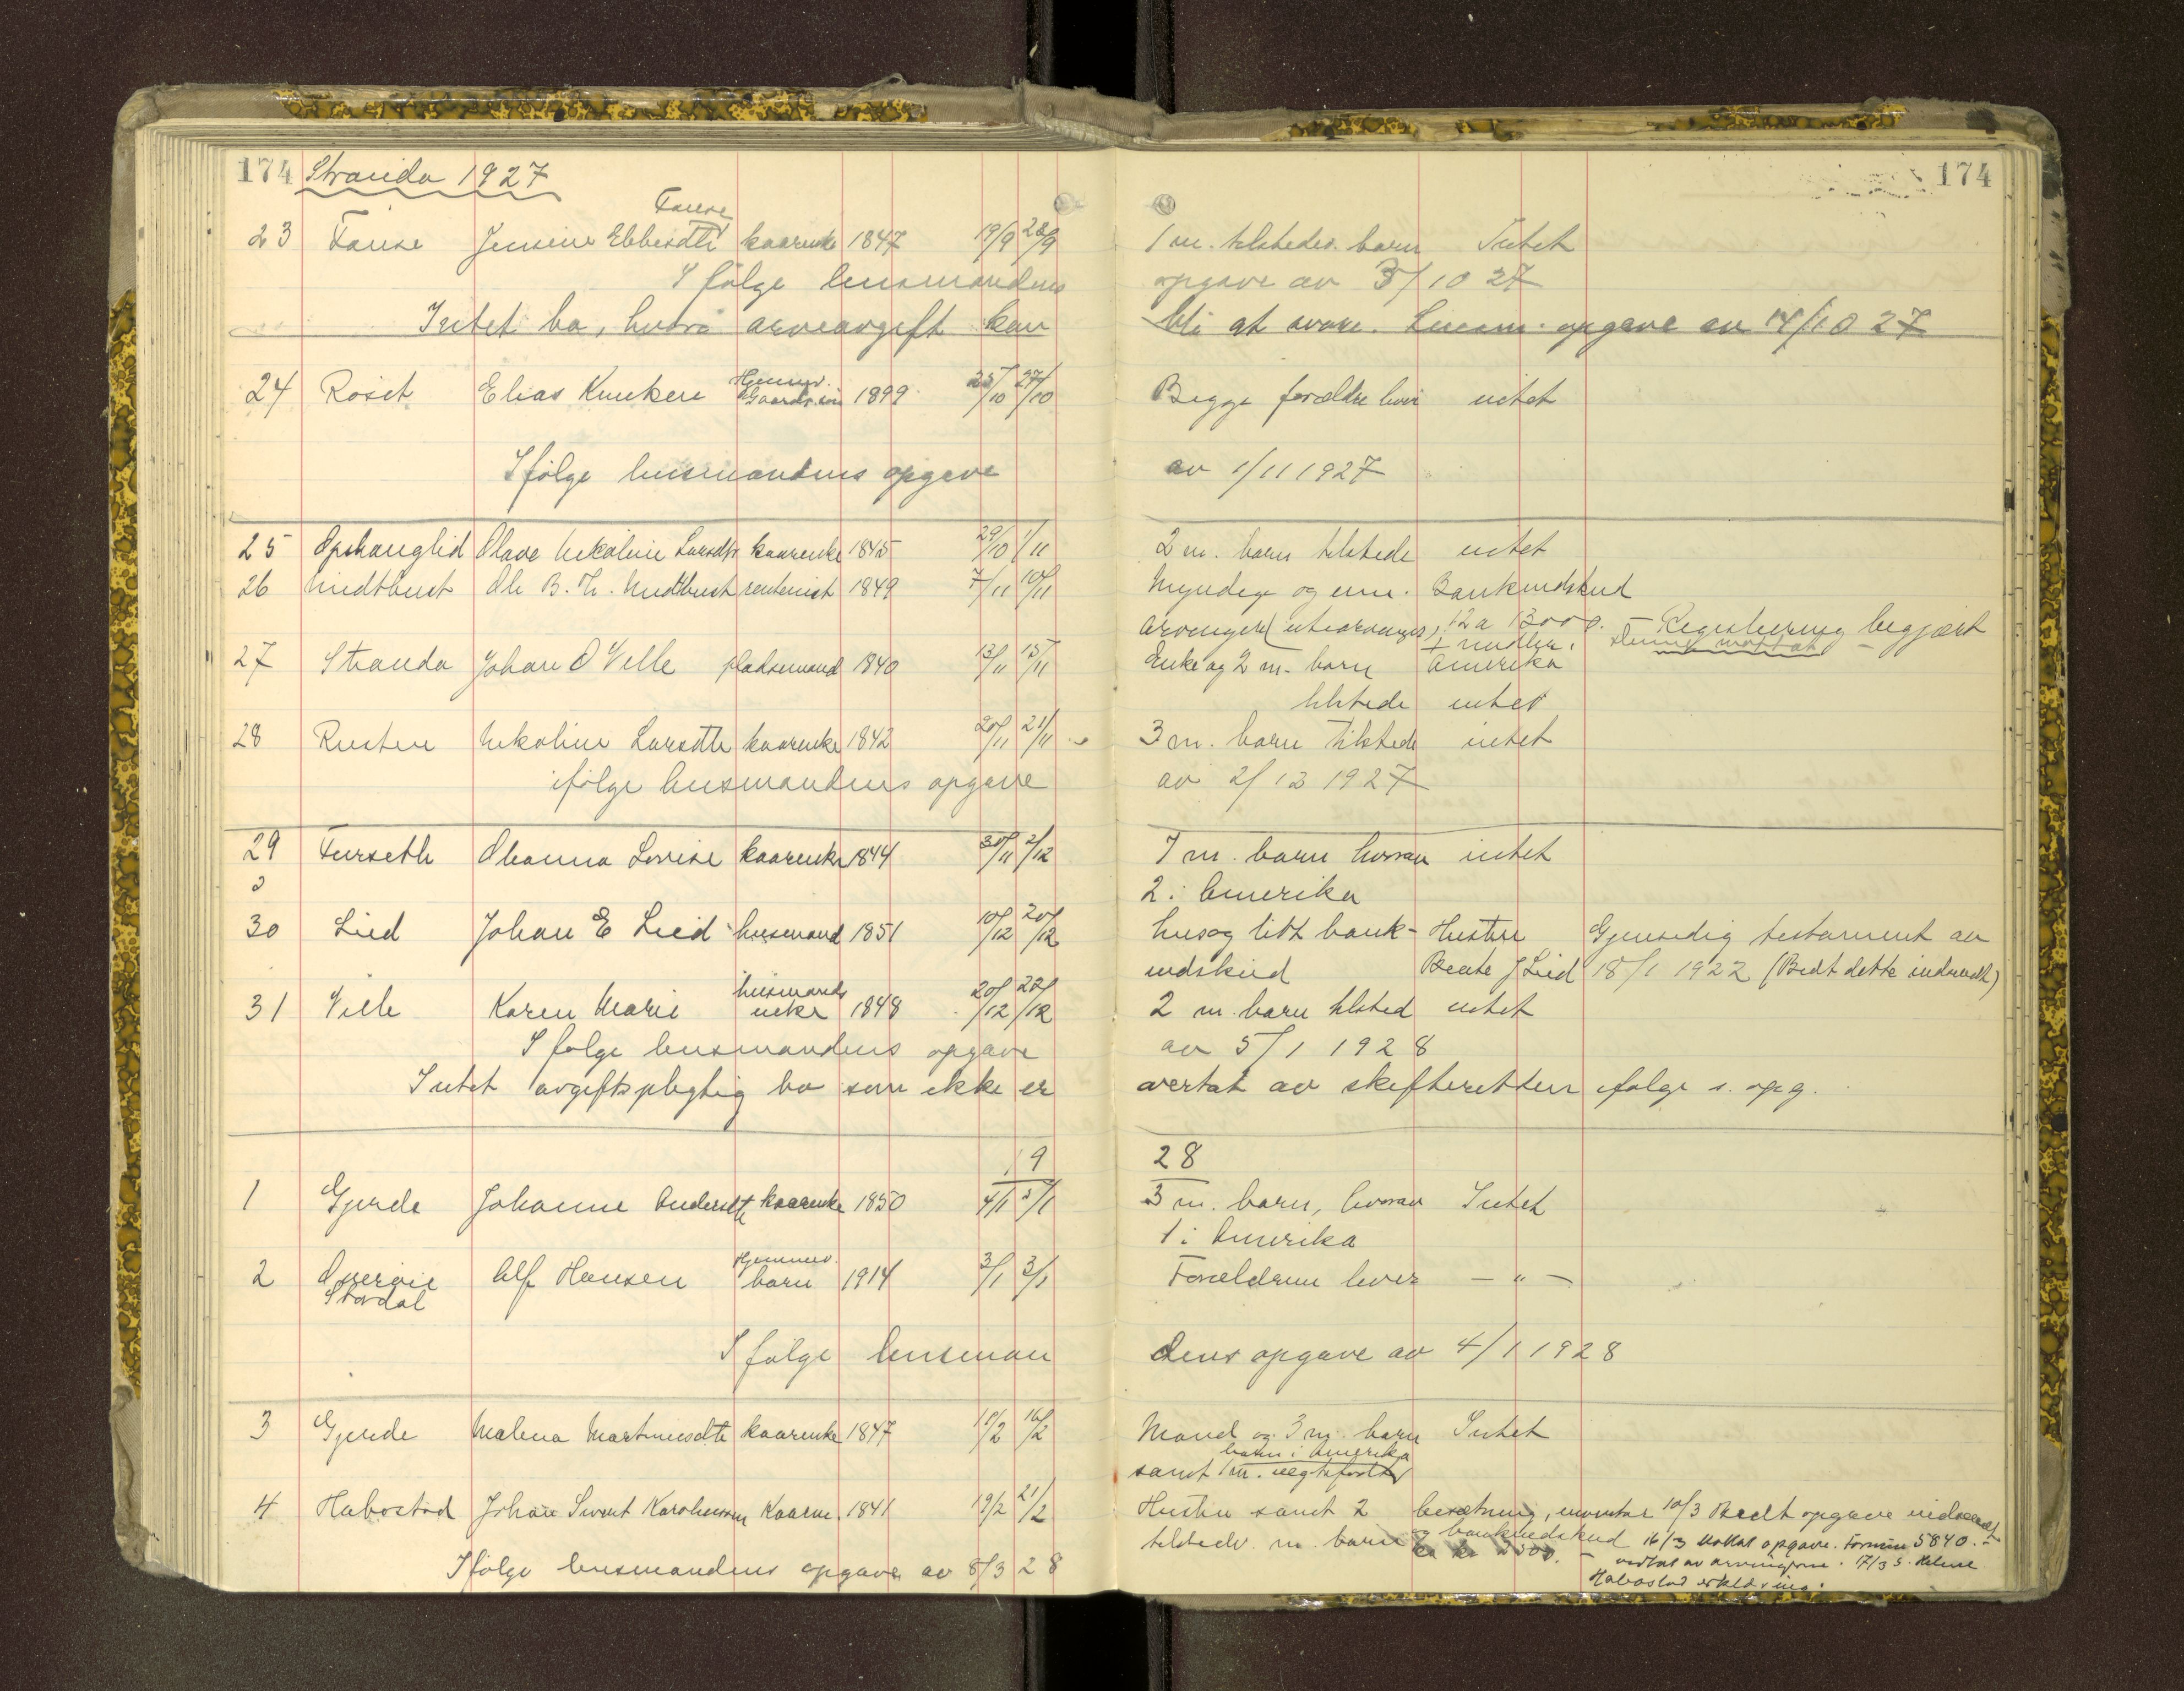 174 Stranda 1927 174
Fause
23 Fause Jensine Ebbesdtr kaarenke 1847 19/9 28/9 1 m. tilstedev. barn Intet
Ifølge lensmandens opgave av 3/10 27
Intet bo, hvorav arveavgift kan bli at svare. Lensm. opgave av 14/10 27
24 Röset Elias Knutsen Hjemmev. Gaards.søn 1899 25/10 27/10 Begge forældre liver intet
Ifølge lensmandens opgave av 1/11 1927
25 Opshauglid Olave Nikoline Larsdtr kaarenke 1845 29/10 1/11 2 m. barn tilstede intet
26 Midtbust Ole B. N. Midtbust rentenist 1849 7/11 10/11 Myndige og um. Bankindskud
arvinger (utearvinger) 12 a 13000. - Registrering begjært
27 Stranda Johan O Velle pladsemand 1840 13/11 15/11 Enke og 2 m. barn Amerika
tilstede intet
28 Rusten Nikoline Larsdtr kaarenke 1842 20/11 21/11 3 m. barn tilstede intet
ifølge lensmandens opgave av 2/12 1927
29 Furseth Olianna Lovise kaarenke 1844 30/11 2/12 7 m. barn hvorav intet
2 i Amerika
30 Lied Johan E Lied husmand 1851 10/12 20/12 hus og litt bank- Hustru Gjensidig testament av
indskud Beate J Lied 18/1 1922 (Bedt dette indsendt)
31 Velle Karen Marie husmands enke 1848 20/12 22/12 2 m. barn tilsted intet
Ifølge lensmandens opgave av 5/1 1928
Intet avgiftspligtig bo som ikke er overtat av skifteretten ifølge s. opg.
19 28
1 Gjerde Johanne Andersdtr kaarenke 1850 4/1 5/1 3 m. barn, hvorav Intet
1 i Amerika
2 Overøie Stordal Alf Hansen Hjemmev. barn 1914 3/1 3/1 Forældrene lever - " -
Ifølge lensmandens opgave av 4/1 1928
3 Gjerde Malena Martinusdtr kaarenke 1847 11/2 16/2 Mand og 3 m. barn Intet
barn i Amerika
samt 1 m.
4 Habostad Johan Sivert Karolusson Kaarm. 1841 19/2 21/2 Hustru samt 2 besætning, inventar 10/3 Bedt opgave indsendt
tilstedev. m. barn og bankindskud 16/3 Mottat opgave. Formue 5840.-
ca kr 2500. - vedtat av arvingerne. 17/3 s. Helene
Ifølge lensmandens opgave av 8/3 28 Habostad erklæring.